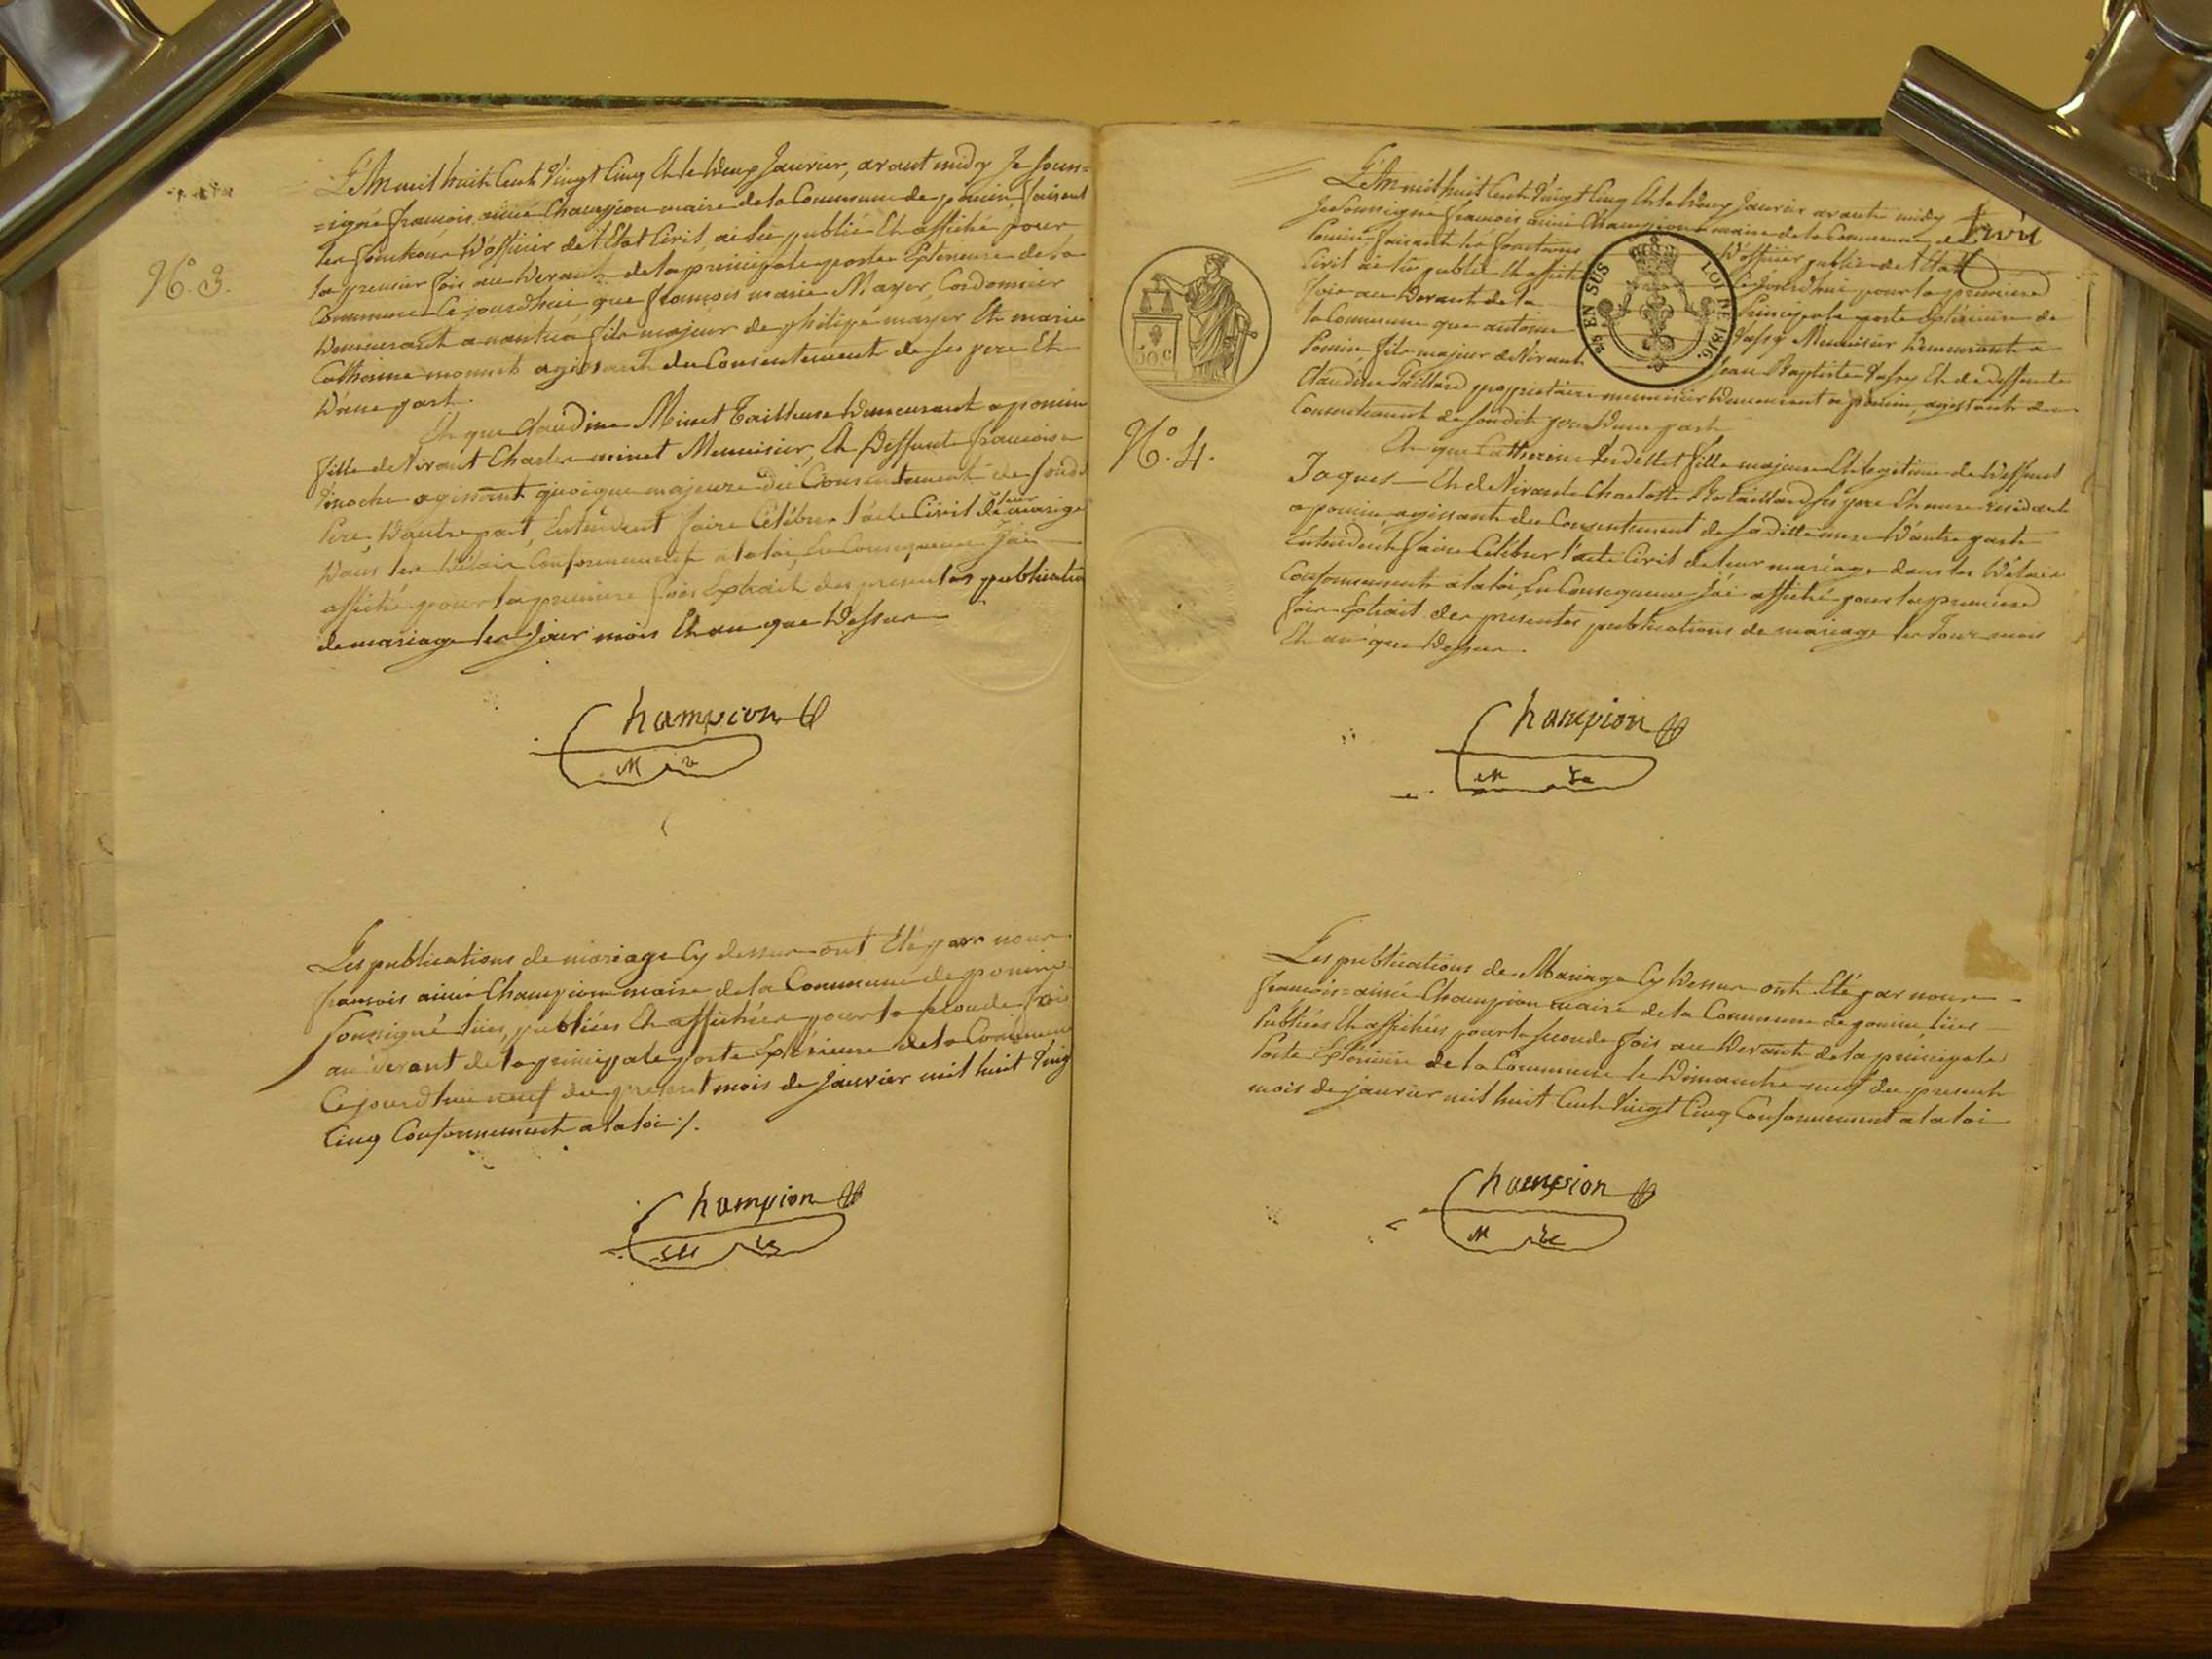 N.º 3.
L'An mil huit Cent Vingt Cinq Et le deux Janvier, avant midy Je Sous=
=signé françois aimé Champion maire de la Commune de poncin faisant
les fonctions d'officier de l'Etat Civil, ai lu publié Et affiché pour
la premier fois au devant de la principale porte Exterieure de la
Commune Cejourdhui que françois marie Mayer, Cordonnier
demeurant a nantua fils majeur de philipe mayer Et marie
Catherine monnet agissant du Consentement de ses pere Et
d'une part.
Et que Claudine Minet Tailleuse demeurant a poncin
fille de Vivant Charles minet Menuisier, Et deffunte francoise
agissant quoique majeure du Consentement de sondt
Pere, d'autre part, Entendent faire Célébrer l'acte Civil de leur mariage
dans les délais Conformement a la loi, En Consequence J'ai
affiché pour la premiere fois Extrait des presentes publications
de mariage les Jour mois Et an que dessus
Champion
M re
Les publications de mariage Cy dessus ont Eté par nous
françois aimé Champion maire de la Commune de poncin
soussigné lües, publiées Et affichées pour la seconde fois
au devant de la principale porte Exterieure de la Commune
Cejourdhui neuf du present mois de Janvier mil huit Vingt
Cinq Conformement a la loi /.
Champion
M re
50 C
25 EN SUS LOI DE 1816.
N.º 4.
L'An mil huit Cent Vingt Cinq Et le deux Janvier avant midy
Je Soussigné françois aimé Champion maire de la Commune de
Poncin faisant les fonctions d'officier public de l'Etat
Civil ai lu publié Et affiché Cejourdhui pour la premiere
fois au devant de la Principale porte Exterieure de
la Commune que antoine Menuisier demeurant a
Poncin fils majeur de Vivant Jean Baptiste Et de deffunte
Claudine Gaillard proprietaire menuisier demeurant a poncin, agissant du
Consentement de sondit pere d'une part
Et que Catherine fille majeure Et legitime de deffunt
Jaques Et de Vivante Charlotte ses pere Et mere residant
a poncin agissante du Consentement de sa ditte mere d'autre part
Entendent faire Célébrer l'acte Civil de leur mariage dans les délais
Conformement a la loi, En Consequence J'ai affiché pour la premiere
fois Extrait des presentes publications de mariage les Jour mois
Et an que dessus.
Champion
M re
Les publications de Mariage Cy dessus ont Eté par nous
françois=aimé Champion maire de la Commune de poncin lües
Publiées Et affichées pour la seconde fois au devant de la principale
Porte Exterieure de la Commune le dimanche neuf du present
mois de janvier mil huit Cent Vingt Cinq Conformement a la loi
Champion
M re